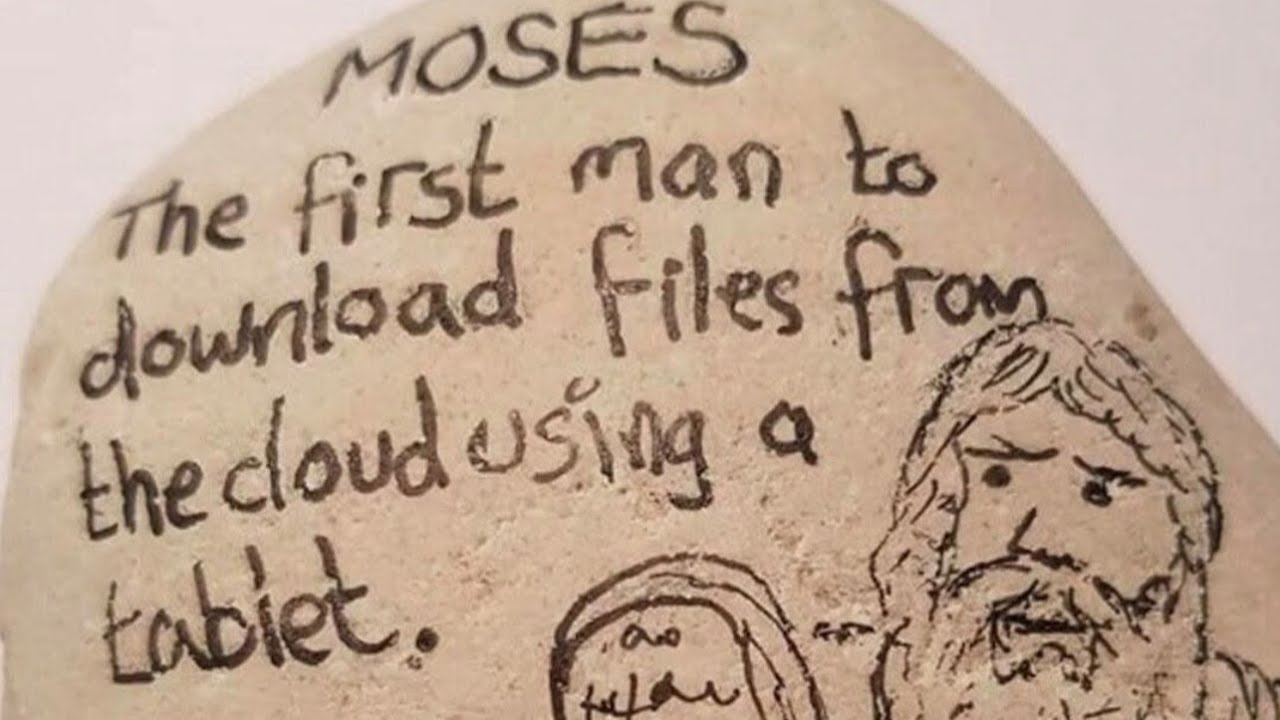 MOSES
The first man to
download files from
the cloud using a
tablet.